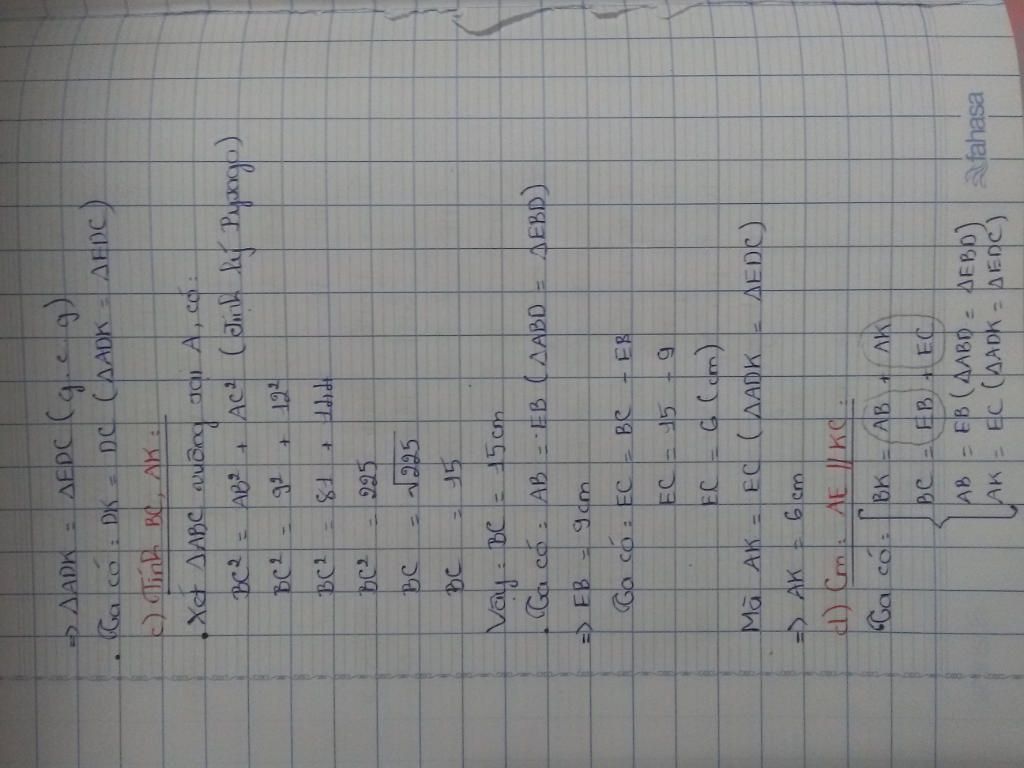 => ΔADK = ΔEDC (g.c.g)
• Ta có: DK = DC (ΔADK = ΔEDC)
c) Tính BC, AK:
• Xét ΔABC vuông tại A, có:
BC² = AB² + AC² (Định lý Pytago)
BC² = 9² + 12²
BC² = 81 + 144
BC² = 225
BC = √225
BC = 15
Vậy: BC = 15cm
• Ta có: AB = EB (ΔABD = ΔEBD)
=> EB = 9cm
Ta có: EC = BC - EB
EC = 15 - 9
EC = 6 (cm)
Mà AK = EC (ΔADK = ΔEDC)
=> AK = 6cm
d) Cm: AE // KC:
Ta có: BK = AB + AK
BC = EB + EC
AB = EB (ΔABD = ΔEBD)
AK = EC (ΔADK = ΔEDC)
fahasa